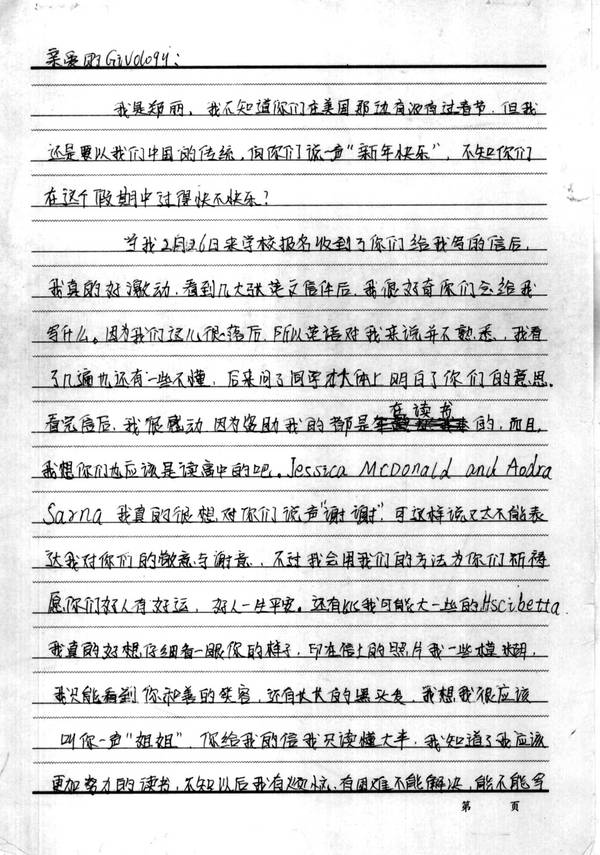 亲爱的Givology:
我是郑丽，我不知道你们在美国那边有没有过春节，但我
还是要以我们中国的传统，向你们说一声“新年快乐”，不知你们
在这个假期中过得快不快乐？
当我2月26日来学校报名收到了你们给我写的信后，
我真的好激动，看到几大张英文信件后，我很好奇你们会给我
写什么。因为我们这儿很落后，所以英语对我来说并不熟悉，我看
了几遍也还有一些不懂，后来问了同学才大体上明白了你们的意思。
看完信后，我很感动，因为资助我的都是在读书的，而且，
我想你们也应该是读高中的吧。Jessica McDonald and Aodra
Sarna 我真的很想对你们说声“谢谢”，可这样说又太不能表
达我对你们的敬意与谢意，不过我会用我们的方法为你们祈祷
愿你们好人有好运，好人一生平安。还有比我可能大一些的Hscibetta
我真的好想仔细看一眼你的样子，印在信上的照片我一些模糊，
我只能看到你和善的笑容，还有长长的黑头发，我想我很应该
叫你一声“姐姐”，你给我的信我只读懂大半，我知道了我应该
更加努力的读书，不知以后我有烦恼，有困难不能解决，能不能写
第 页